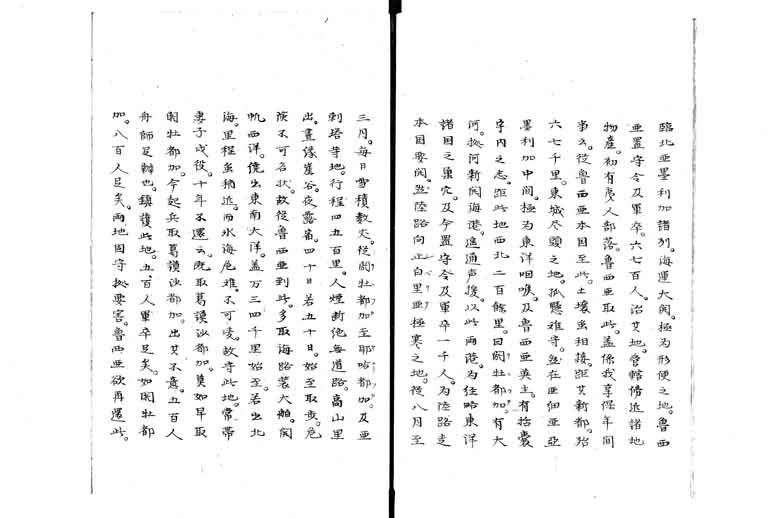 臨北亜墨利加諸列。海運大開。極為形便之地。魯西
亜置守令及軍卒。六七百人。治其地。管轄傍近諸地
物産。初有夷人部落。魯西亜取此。蓋係我享保年間
事云。従魯西亜本国至此。土壌虽相接。距其新都。殆
六七千里。東城尽頭之地。孤懸難守。然在亜細亜亜
墨利加中間。極為東洋咽喉。及魯西亜英主。有括囊
宇内之志。距此地西北二百餘里。曰関牡都加。有大
河。拠河新開海港。遙通声援。以此両港。為経略東洋
諸国之巣穴。及今置守令及軍卒一千人。為陸路走
本国要関。然陸路向止白里亜極寒之地。従八月至
三月。毎日雪積数丈。従関牡都加。至耶哈都加。及亜
剌塔等地。行程四五百里。人煙断絶無道路。高山里
出。昼縁崖谷。夜露宿。四十日若五十日。始至取要。危
険不可名状。故従魯西亜到此。多取海路装大舶。開
帆西洋。繞出東南大洋。蓋万三四千里始至。若出北
海。里程虽稍近。而氷海危难。不可凌。故守此地。常帯
妻子戍役。十年不還云。既取葛謨沙都加。莫如早取
関牡都加。今起兵取葛謨沙都加。出其不意。五百人
舟師足辦也。鎮護此地。五百人軍卒足矣。如関牡都
加。八百人足矣。両地固守拠要害。魯西亜欲再還此。